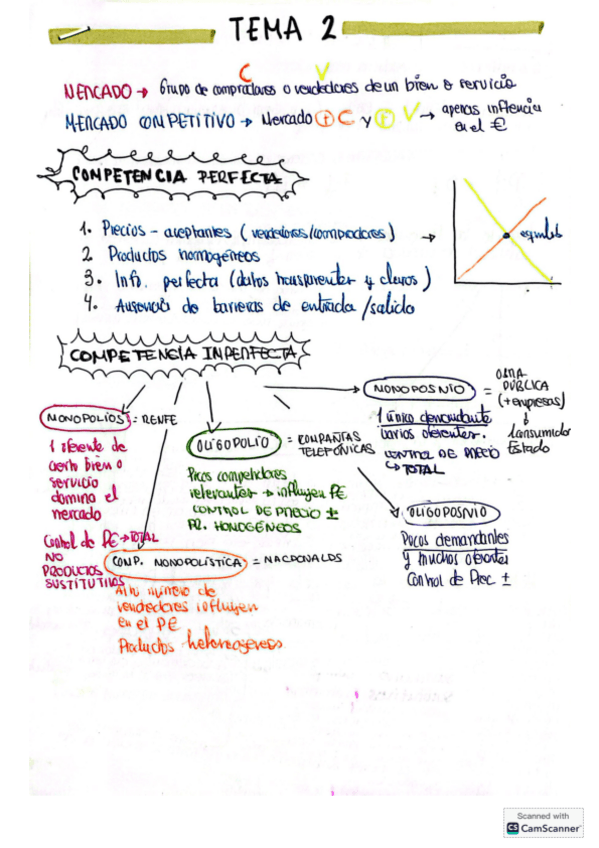 TEMA 2
C V
MERCADO → Grupo de compradores o vendedores de un bien o servicio
MERCADO COMPETITIVO → Mercado + C y + V → apenas influencia
en el €
COMPETENCIA PERFECTA
1. Precios - aceptantes (vendedores/compradores) →
2. Productos homogéneos
3. Inf. perfecta (datos transparentes y claros)
4. Ausencia de barreras de entrada/salida
equilib
COMPETENCIA IMPERFECTA
MONOPOLIOS = RENFE
1 oferente de
cierto bien o
servicio
domina el
mercado
Control de P€ → TOTAL
NO
PRODUCTOS
SUSTITUTIVOS
OLIGOPOLIO = COMPAÑIAS
TELEFÓNICAS
Pocos competidores
relevantes → influyen P€
CONTROL DE PRECIO ±
PR. HOMOGÉNEOS
MONOPOSNIO = OBRA
PÚBLICA
(+ empresas)
↓
1 consumidor
Estado
1 único demandante
varios oferentes.
CONTROL DE PRECIO
↳ TOTAL
OLIGOPOSNIO
Pocos demandantes
y muchos oferentes
Control de Prec ±
COMP. MONOPOLÍSTICA = MACDONALDS
Alto número de
vendedores influyen
en el P€
Productos heterogéneos
Scanned with
CS CamScanner